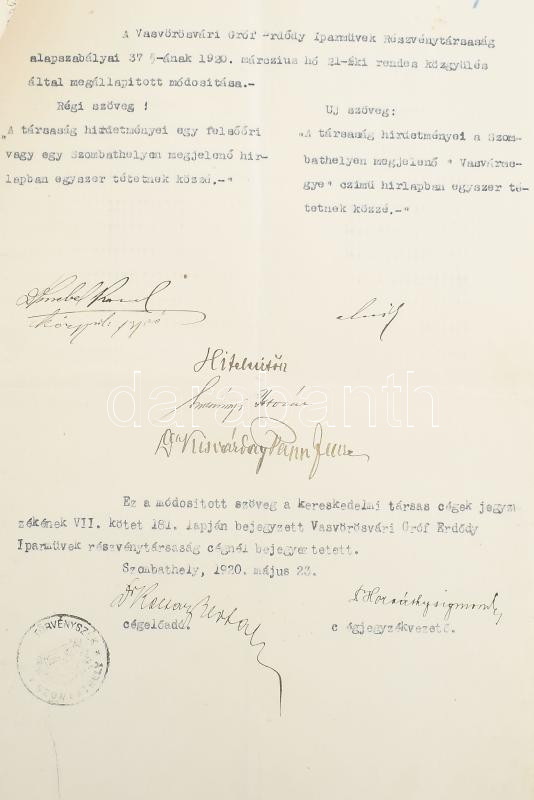 A Vasvörösvári Gróf Erdődy Iparmüvek Részvénytársaság
alapszabályai 37 §-ának 1920. márczius hó 21-éki rendes közgyülés
által megállapitott módositása.-
Régi szöveg !
„A társaság hirdetményei egy felsőőri
vagy egy Szombathelyen megjelenő hir-
lapban egyszer tétetnek közzé.-"
Uj szöveg:
„A társaság hirdetményei a Szom-
bathelyen megjelenő " Vasvárme-
gye" czimü hirlapban egyszer té-
tetnek közzé.-"
elnök
Hitelesítők
István
Dr Kisvárday Papp
darabanth
Ez a módositott szöveg a kereskedelmi társas cégek jegyzé
zékének VII. kötet 181. lapján bejegyzett Vasvörösvári Gróf Erdődy
Iparmüvek részvénytársaság cégnél bejegyeztetett.
Szombathely, 1920. május 23.
Dr Horváth Zsigmond
cégelőadó.
cégjegyzékvezető.
TÖRVÉNYSZÉK